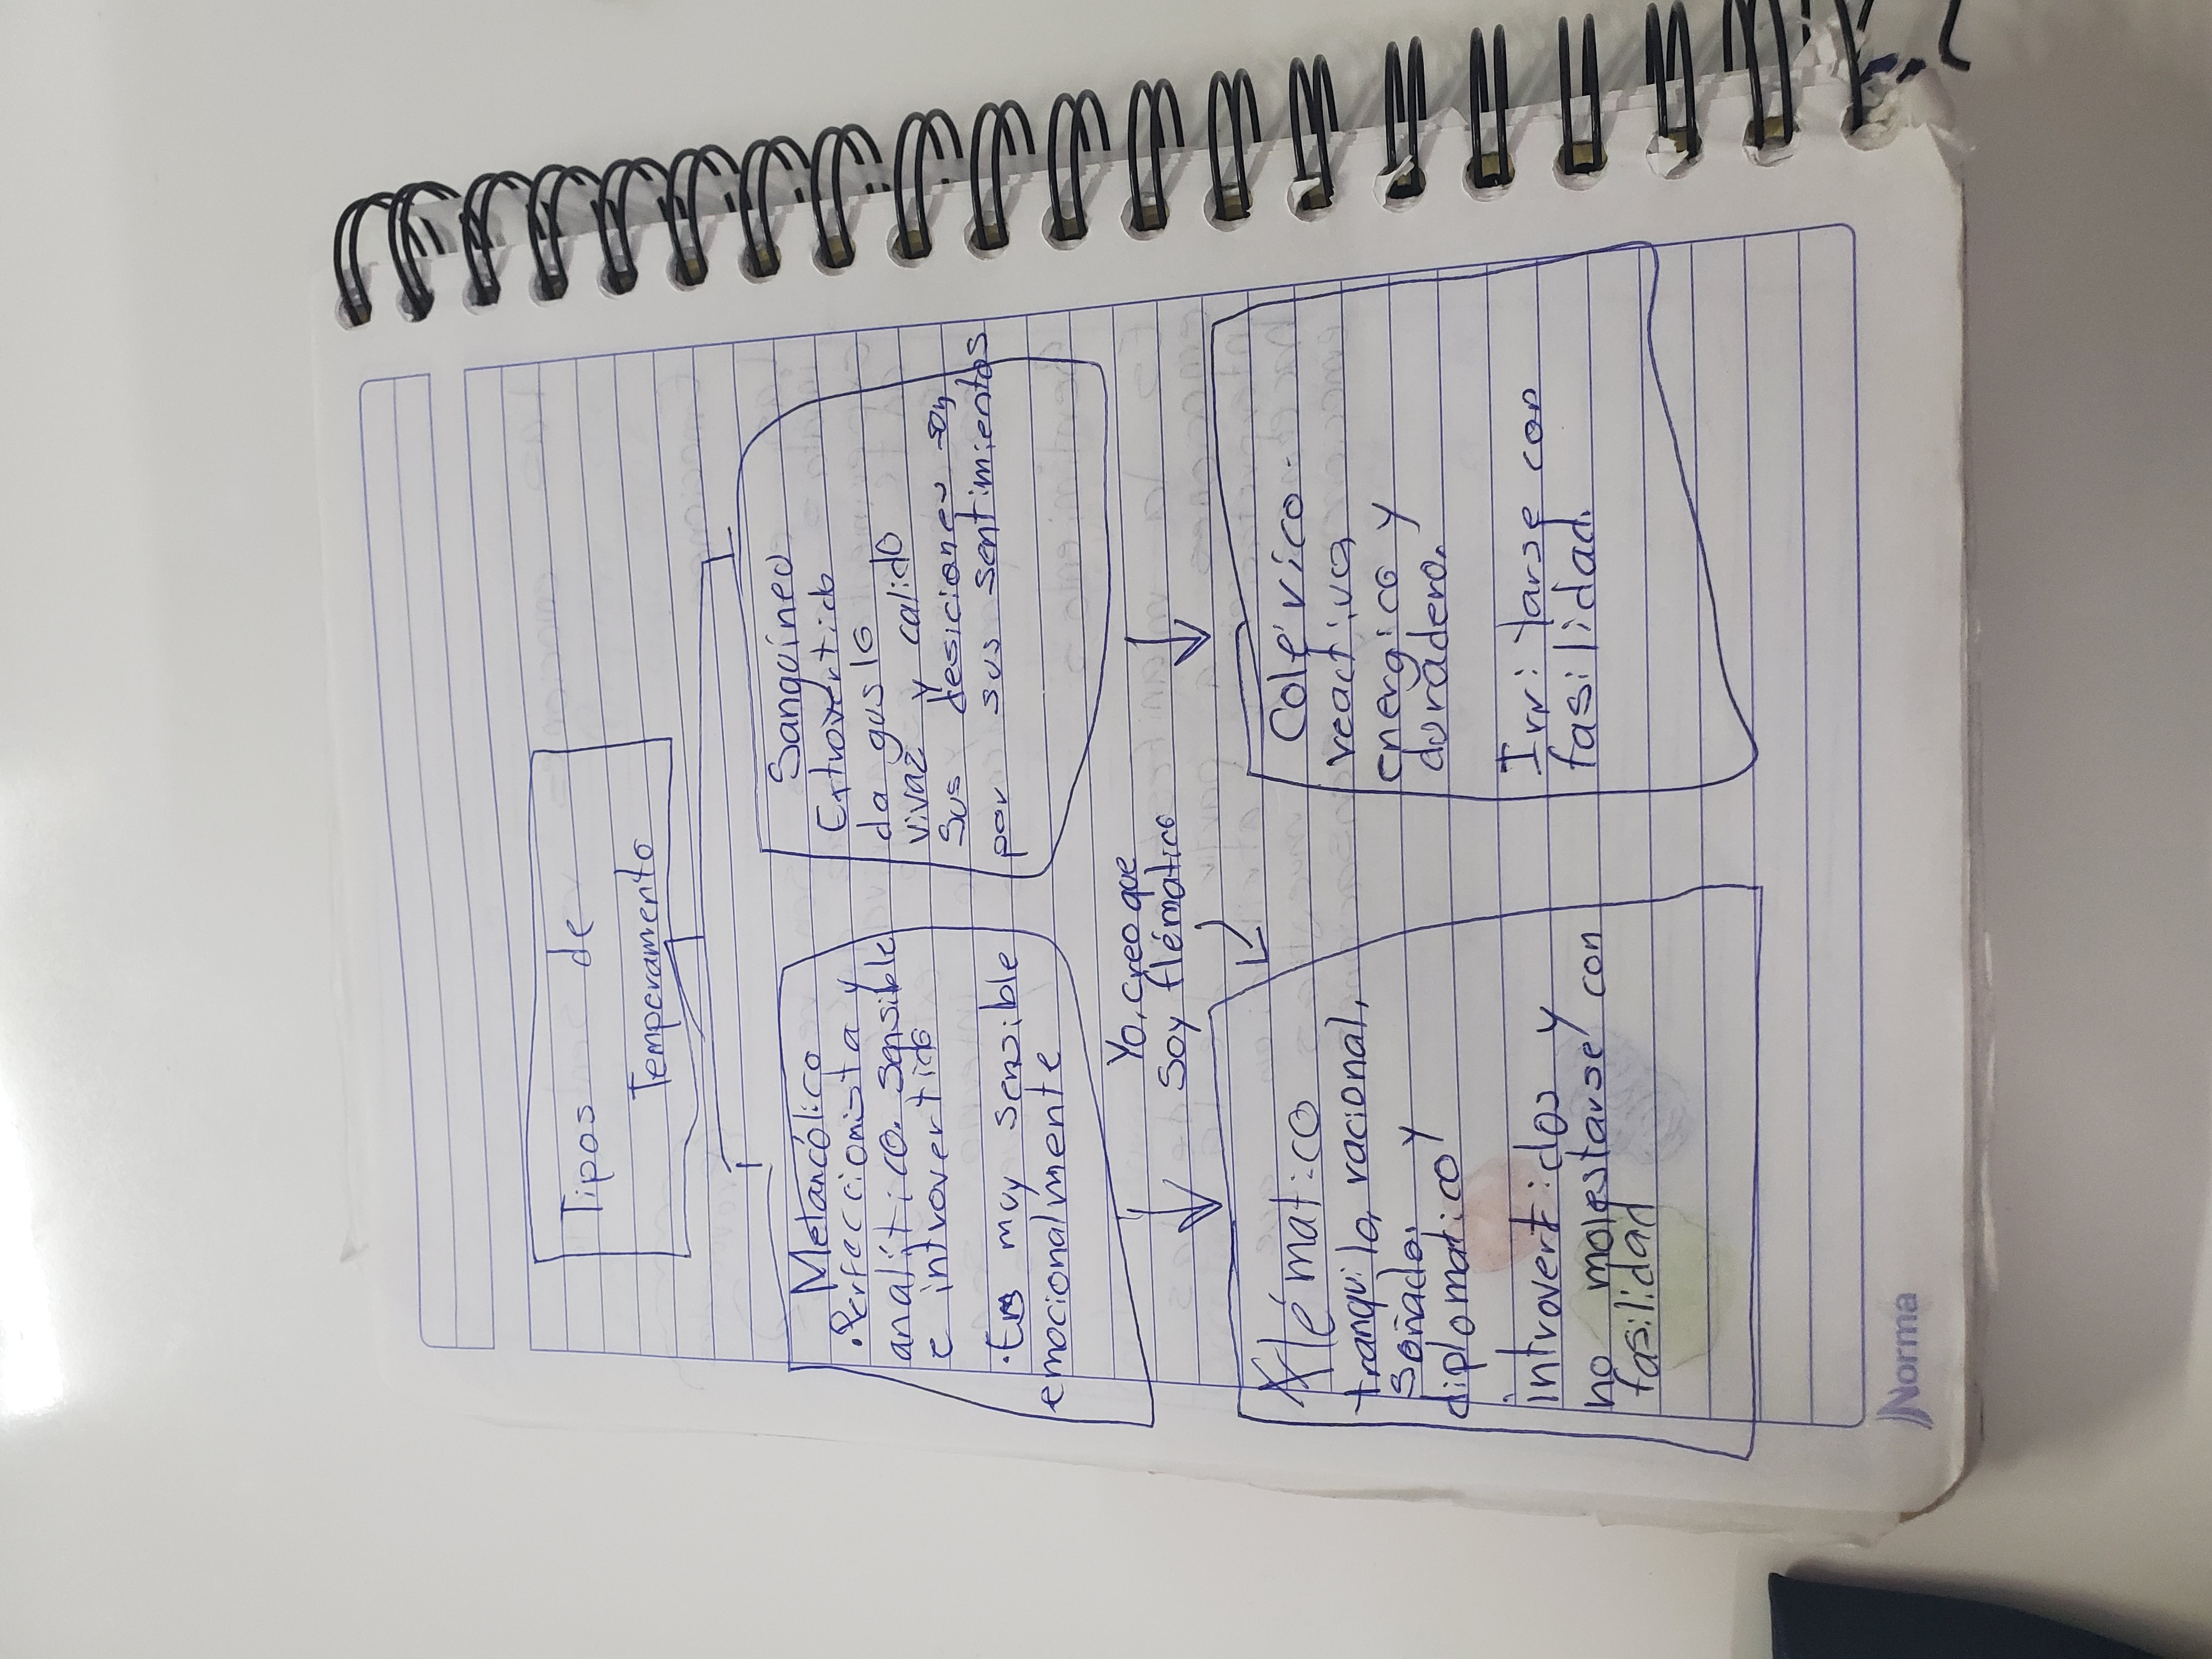 Tipos de
Temperamento
Melancólico
•Perfeccionista y
analítico. sensible
e introvertido
•Es muy sensible
emocionalmente
Sanguíneo
Extrovertido
da gusto
vivaz y calido
Sus desiciones son
por sus sentimientos
Yo creo que
Soy flématico
Flémat:co
tranquilo, racional,
Soñador y
diplomatico
introvert:dos y
no molestarse con
fasilidad
Colérico.
reactivo,
energico y
duradero.
Irri tarse con
fasilidad.
Norma